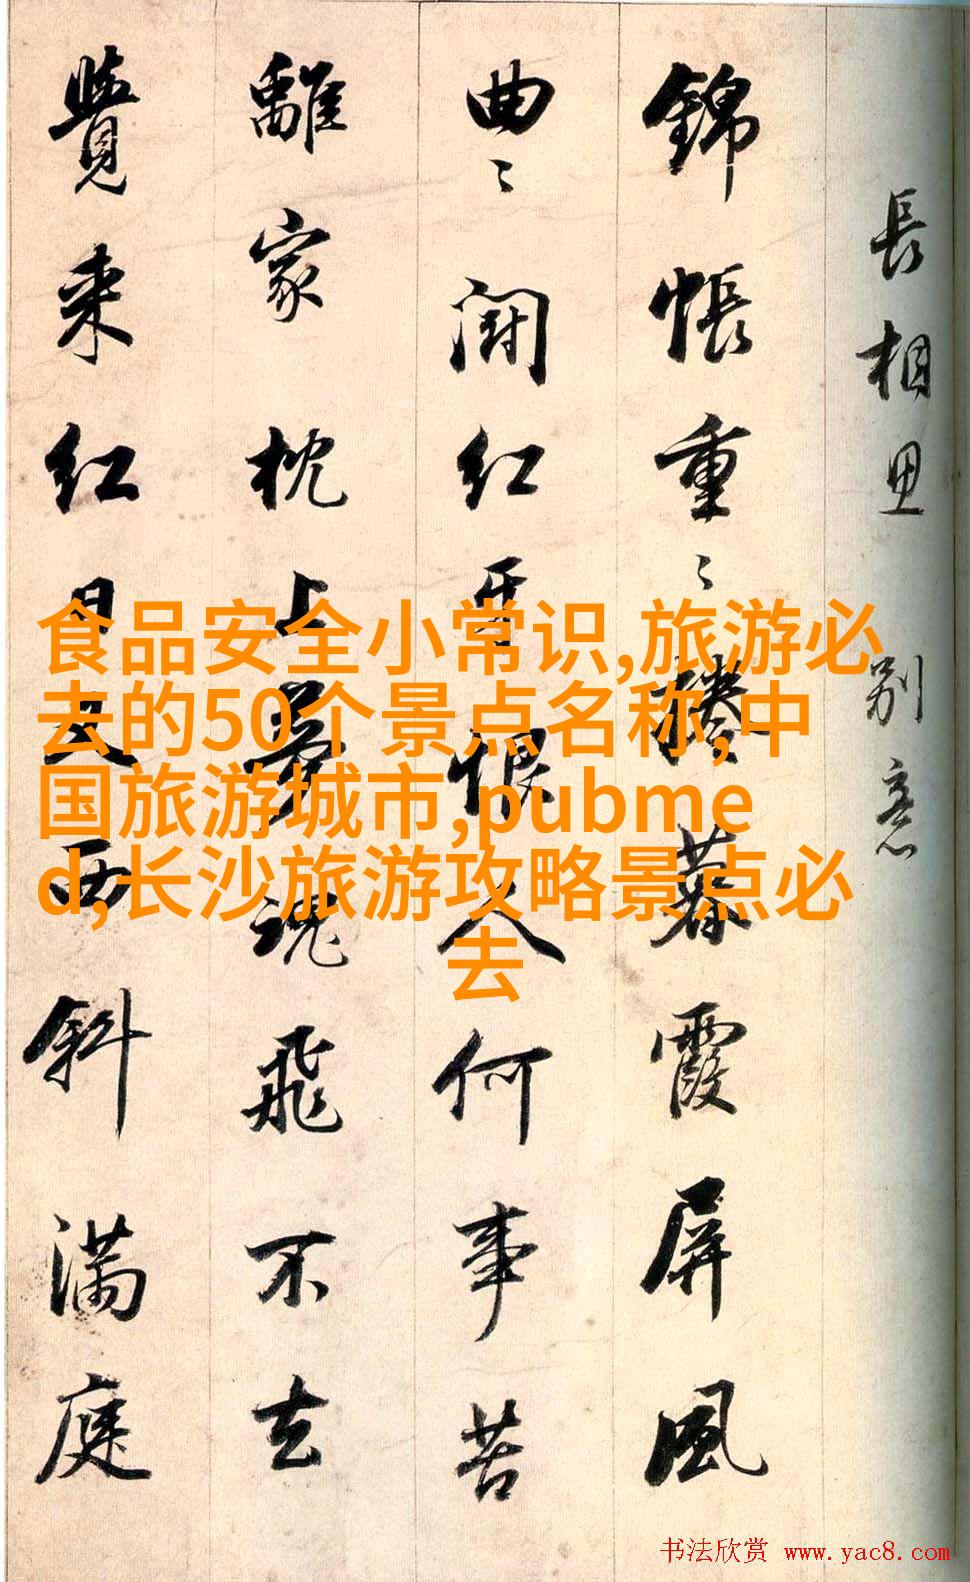 長相思 別意
錦帳重〻捲暮霞屏風
曲〻闘紅牙恨人何事苦
離家枕上夢魂飛不去
覺來紅日又西斜滿庭
食品安全小常识,旅游必
去的50个景点名称,中
国旅游城市,pubme
d,长沙旅游攻略景点必
去
书法欣赏 www.yac8.com